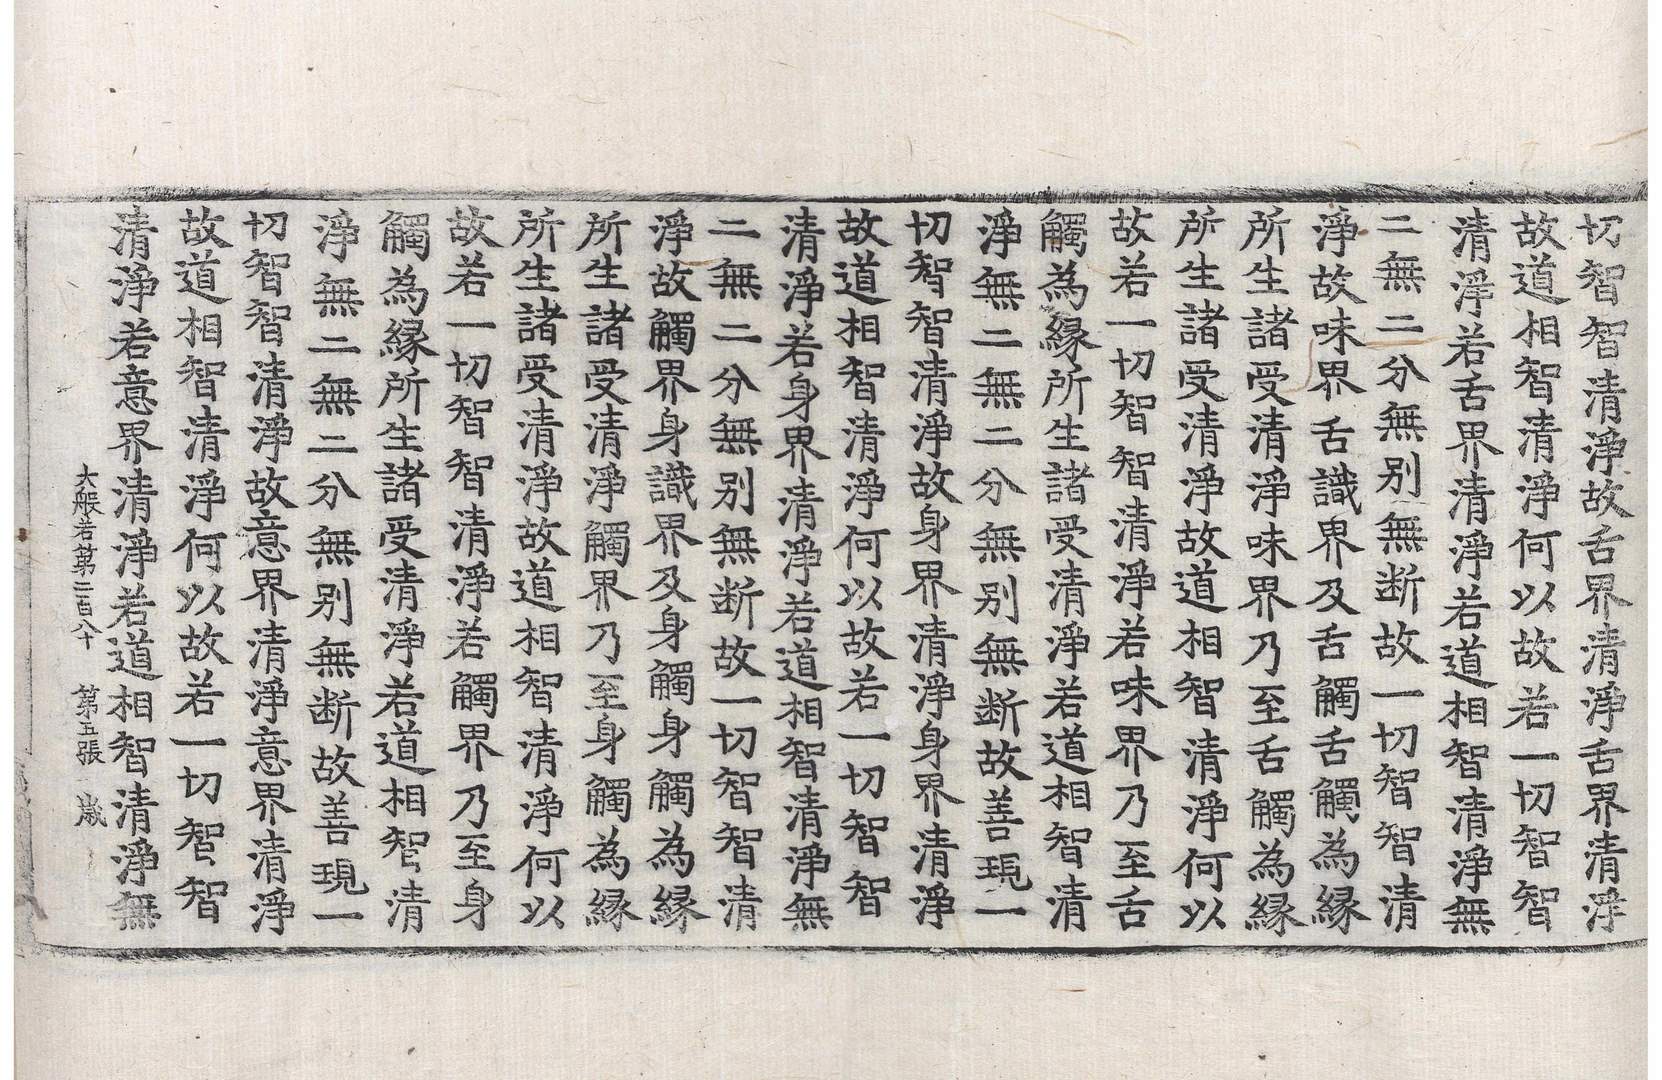 切智智清淨故舌界清淨舌界清淨
故道相智清淨何以故若一切智智
清淨若舌界清淨若道相智清淨無
二無二分無别無断故一切智智清
淨故味界舌識界及舌觸舌觸為縁
所生諸受清淨味界乃至舌觸為縁
所生諸受清淨故道相智清淨何以
故若一切智智清淨若味界乃至舌
觸為縁所生諸受清淨若道相智清
淨無二無二分無别無断故善現一
切智智清淨故身界清淨身界清淨
故道相智清淨何以故若一切智智
清淨若身界清淨若道相智清淨無
二無二分無别無断故一切智智清
淨故觸界身識界及身觸身觸為縁
所生諸受清淨觸界乃至身觸為縁
所生諸受清淨故道相智清淨何以
故若一切智智清淨若觸界乃至身
觸為縁所生諸受清淨若道相智清
淨無二無二分無别無断故善現一
切智智清淨故意界清淨意界清淨
故道相智清淨何以故若一切智智
清淨若意界清淨若道相智清淨無
大般若第二百八十 第五張